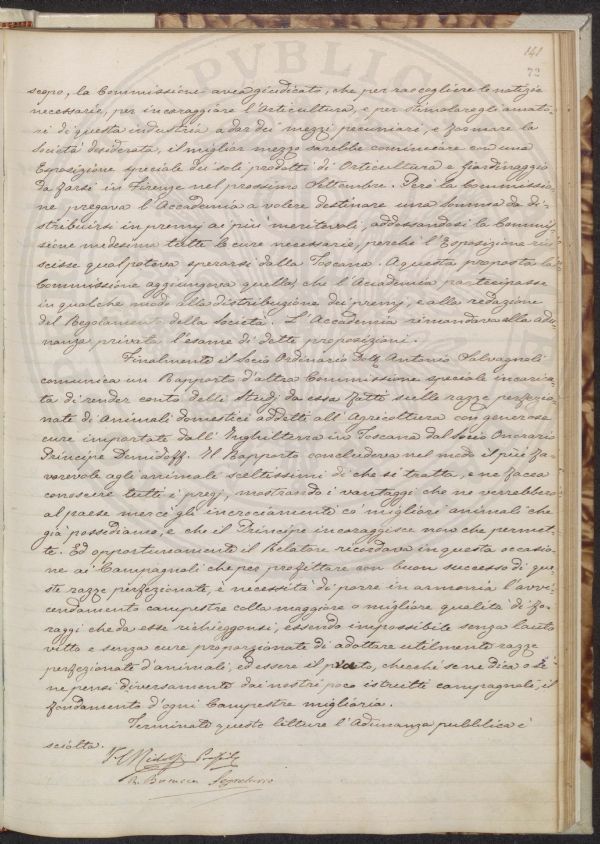 141
72
scopo, la Commissione avea giudicato, che per raccogliere le notizie
necessarie, per incoraggiare l'Orticultura, e per stimolare gli amato-
ri di questa industria a dar dei mezzi pecuniari, e formare la
Società desiderata, il miglior mezzo sarebbe cominciare con una
Esposizione speciale dei soli prodotti di Orticultura e Giardinaggio
da farsi in Firenze nel prossimo Settembre. Però la Commissio-
ne pregava l'Accademia a volere destinare una summa da di-
stribuirsi in premj ai più meritevoli, addossandosi la Commis-
sione medesima tutte le cure necessarie, perché l'Esposizione riu-
scisse qual poteva sperarsi dalla Toscana. A questa proposta la
Commissione aggiungeva quella, che l'Accademia partecipasse
in qualche modo alla distribuzione dei premj, e alla redazione
del Regolamento della Società. L'Accademia rimandava alla adu-
nanza privata l'esame di dette proposizioni.
Finalmente il Socio Ordinario Dott. Antonio Salvagnoli
comunica un Rapporto d'altra Commissione speciale incarica-
ta di render conto delli Studj da essa fatti sulle razze perfezio-
nate di Animali domestici addetti all'Agricoltura con generose
cure importate dall'Inghilterra in Toscana dal Socio Onorario
Principe Demidoff. Il Rapporto concludeva nel modo il più fa-
vorevole agli animali sceltissimi di che si tratta, e ne facea
conoscere tutti i pregj, mostrando i vantaggi che ne verrebbero
al paese mercè gli incrociamenti co' migliori animali che
già possediamo, e che il Principe incoraggisce non che permet-
te. Ed opportunamente il Relatore ricordava in questa occasio-
ne ai Campagnoli che per profittare con buon successo di que-
ste razze perfezionate, è necessità di porre in armonia l'avvi-
cendamento campestre colla maggiore e migliore qualità di fo-
raggi che da esse richieggonsi, essendo impossibile senza lauto
vitto e senza cure proporzionate di adottare utilmente razze
perfezionate d'animali, ed essere il prato, checchè se ne dica o se
ne pensi diversamente dai nostri poco istruiti campagnoli, il
fondamento d'ogni Campestre miglioria.
Terminate queste letture l'Adunanza pubblica è
sciolta.
Ridolfi
Segretario